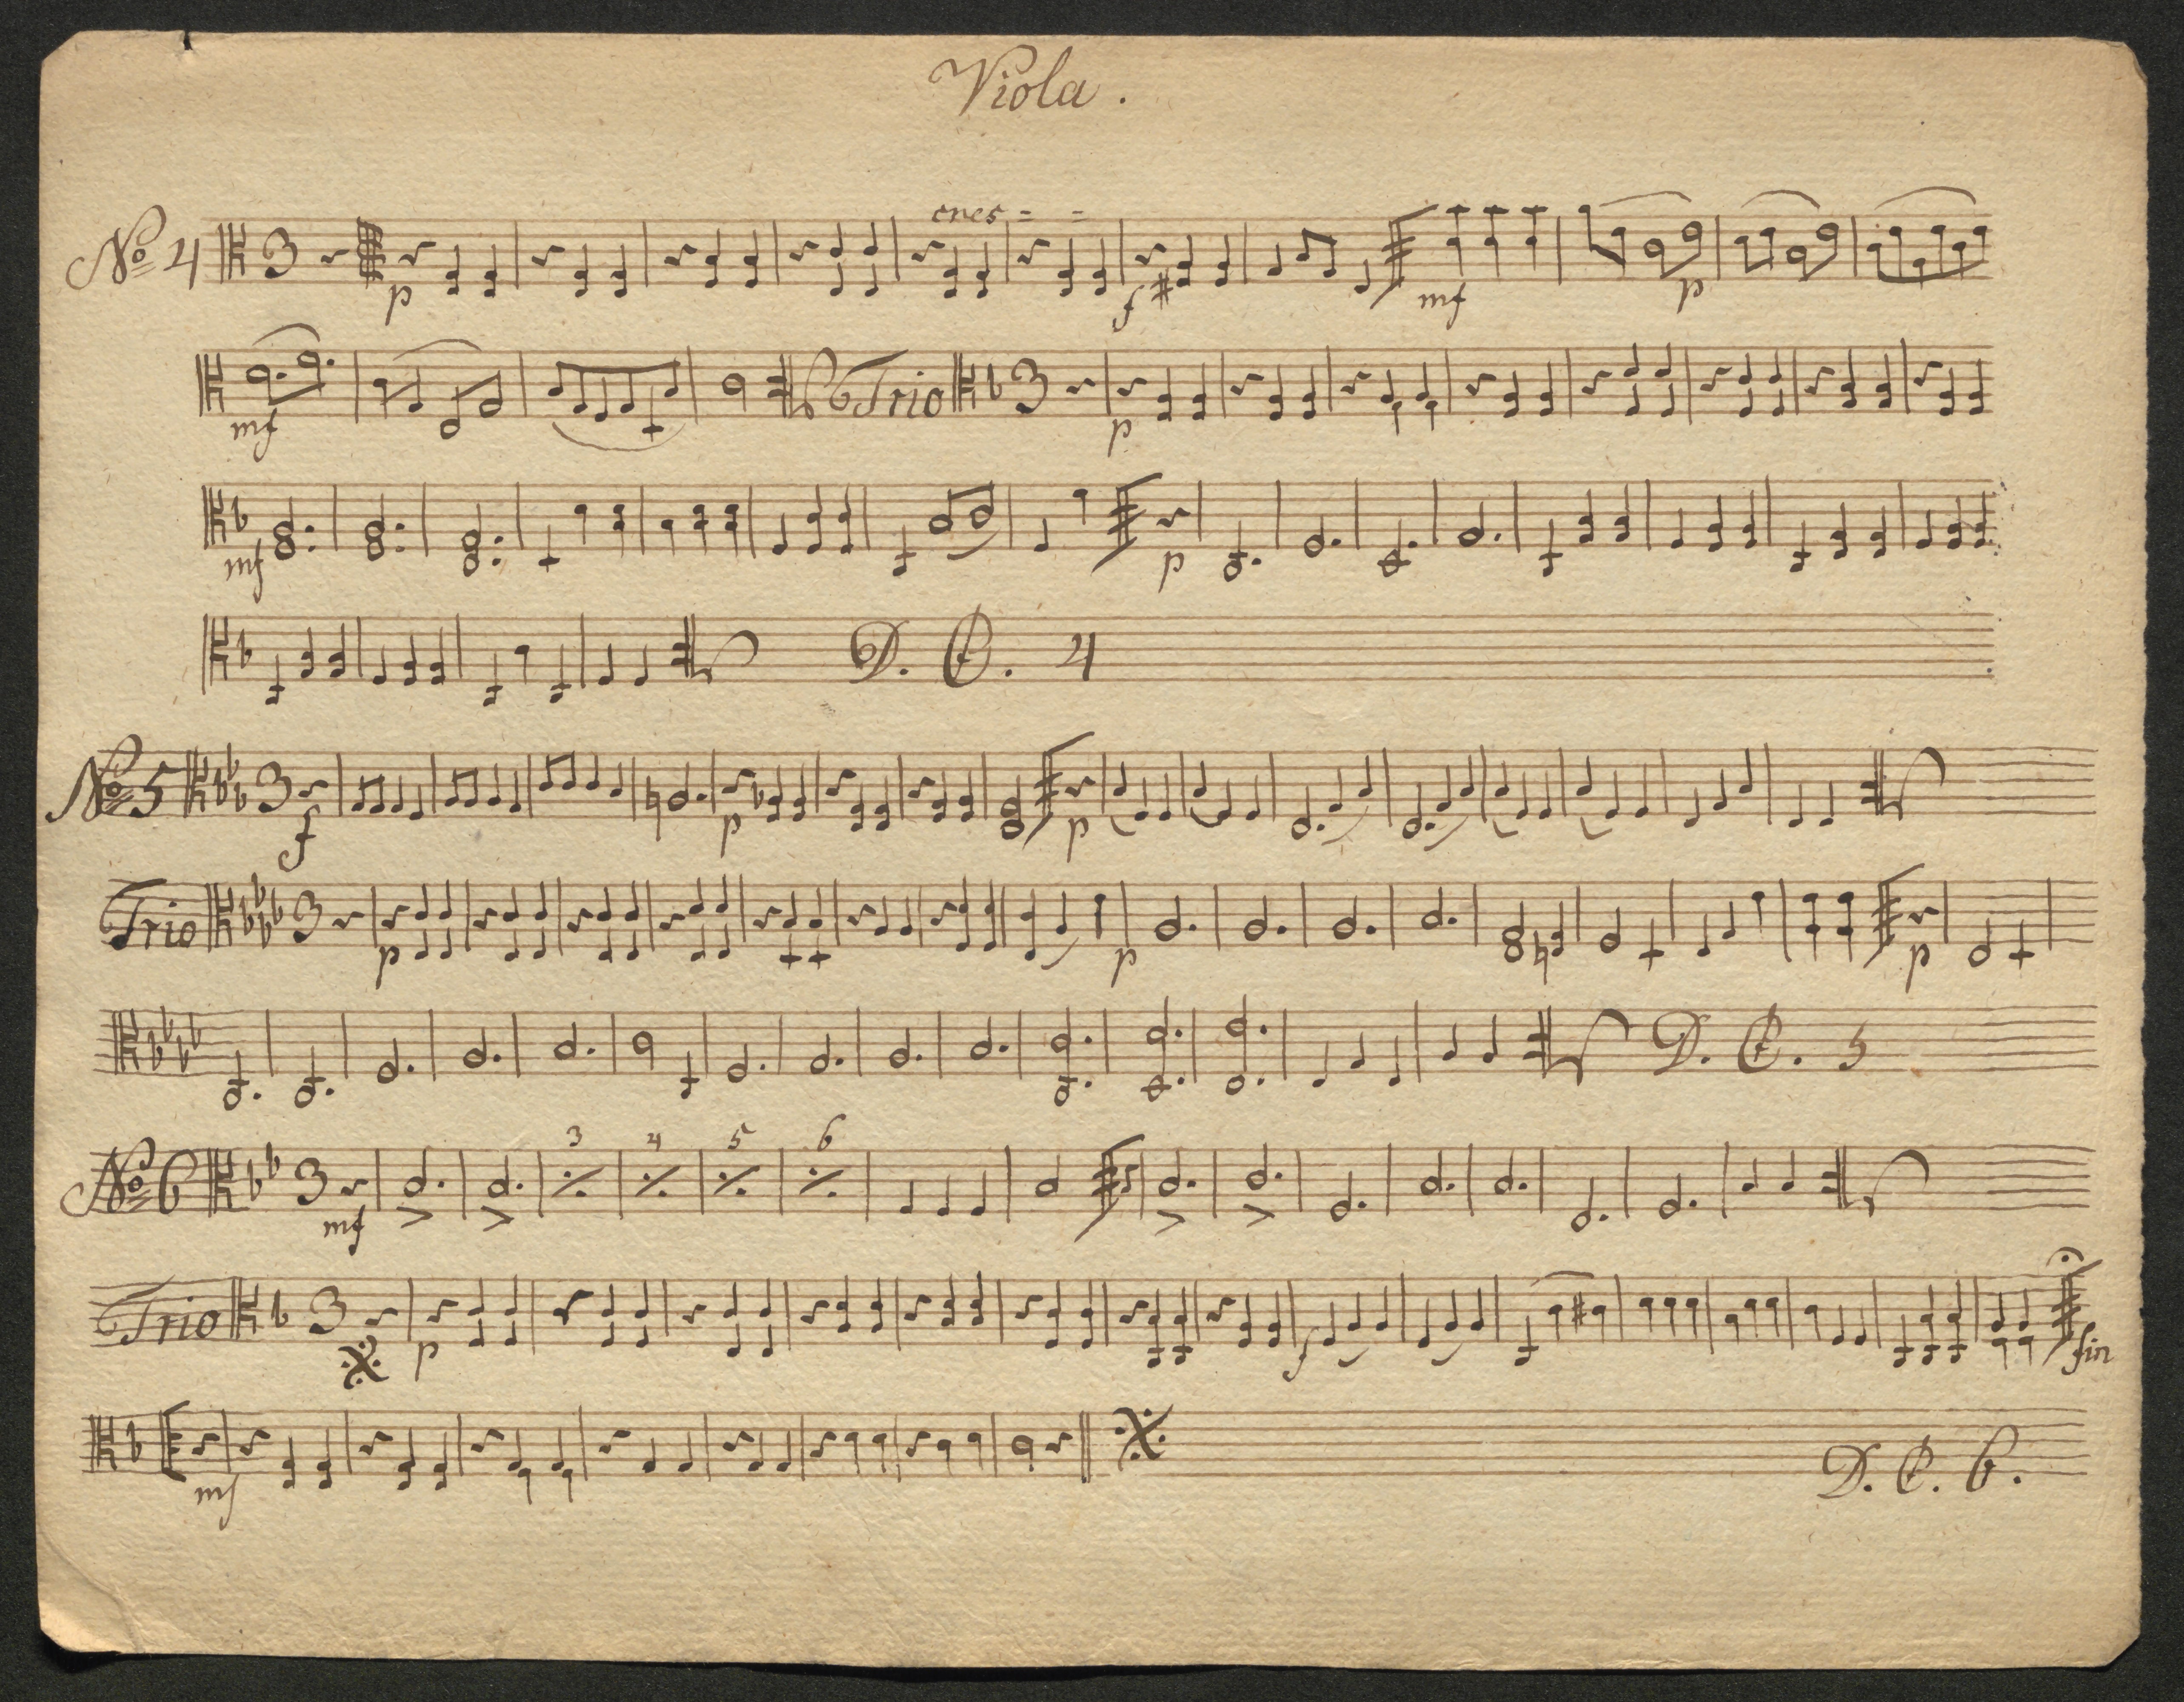 Viola.
cres = =
No 4 3 p f mf p
mf Trio 3 p
mf p
D. C. 4
No 5 3 f p p
Trio 3 p p p
D. C. 5
3 4 5 6
No 6 3 mf
Trio 3 p f fin
mf D. C. 6.